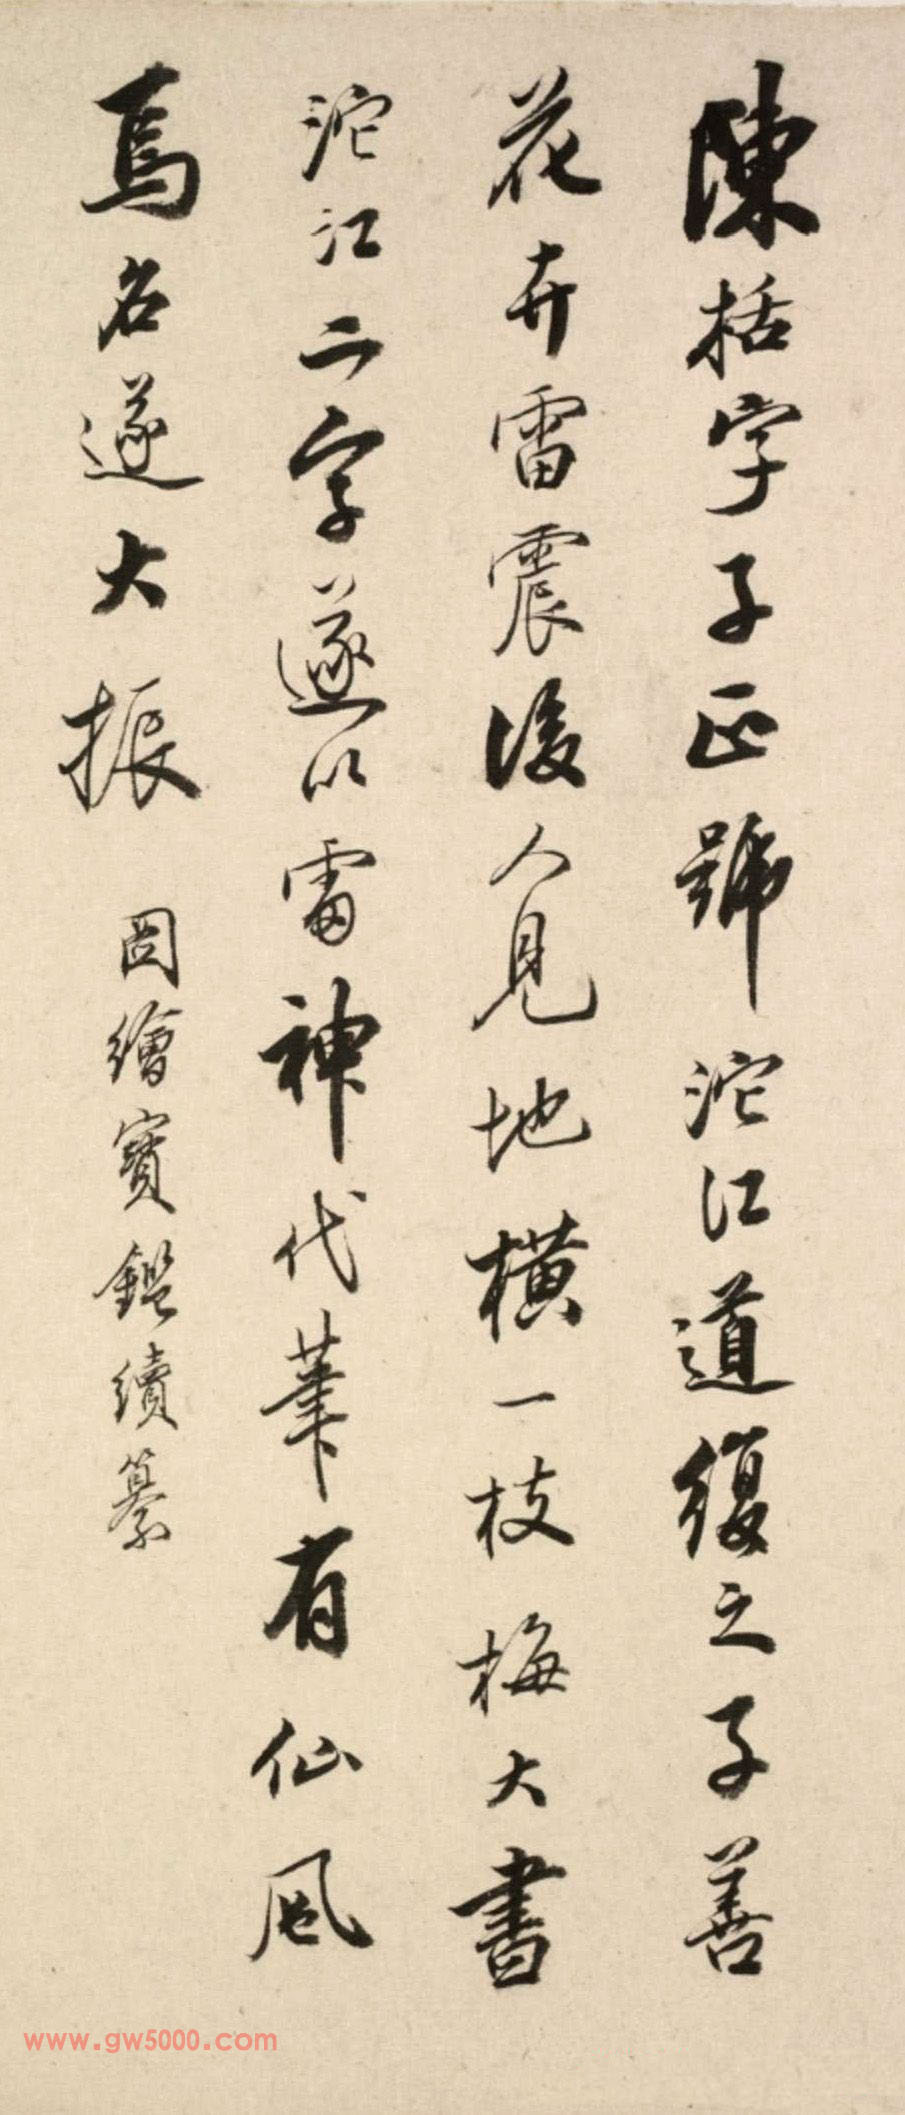 陳括字子正號沱江道復之子善
花卉雷震後人見地橫一枝梅大書
沱江二字遂以雷神代筆有仙風
焉名遂大振 圖繪寶鑑續纂
www.gw5000.com